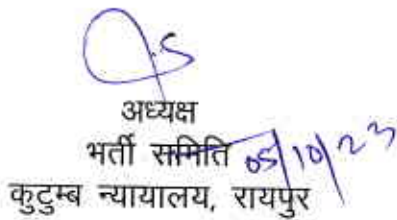 अध्यक्ष
भर्ती समिति 05/10/23
कुटुम्ब न्यायालय, रायपुर